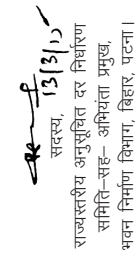 13/3/15
सदस्य,
राज्यस्तरीय अनुसूचित दर निर्धारण
समिति–सह– अभियंता प्रमुख,
भवन निर्माण विभाग, बिहार, पटना।